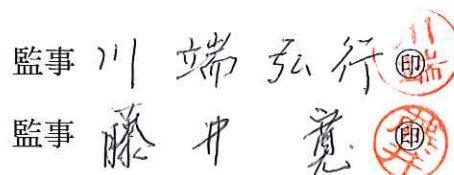 監事 川端弘行 ㊞
監事 藤井寛 ㊞